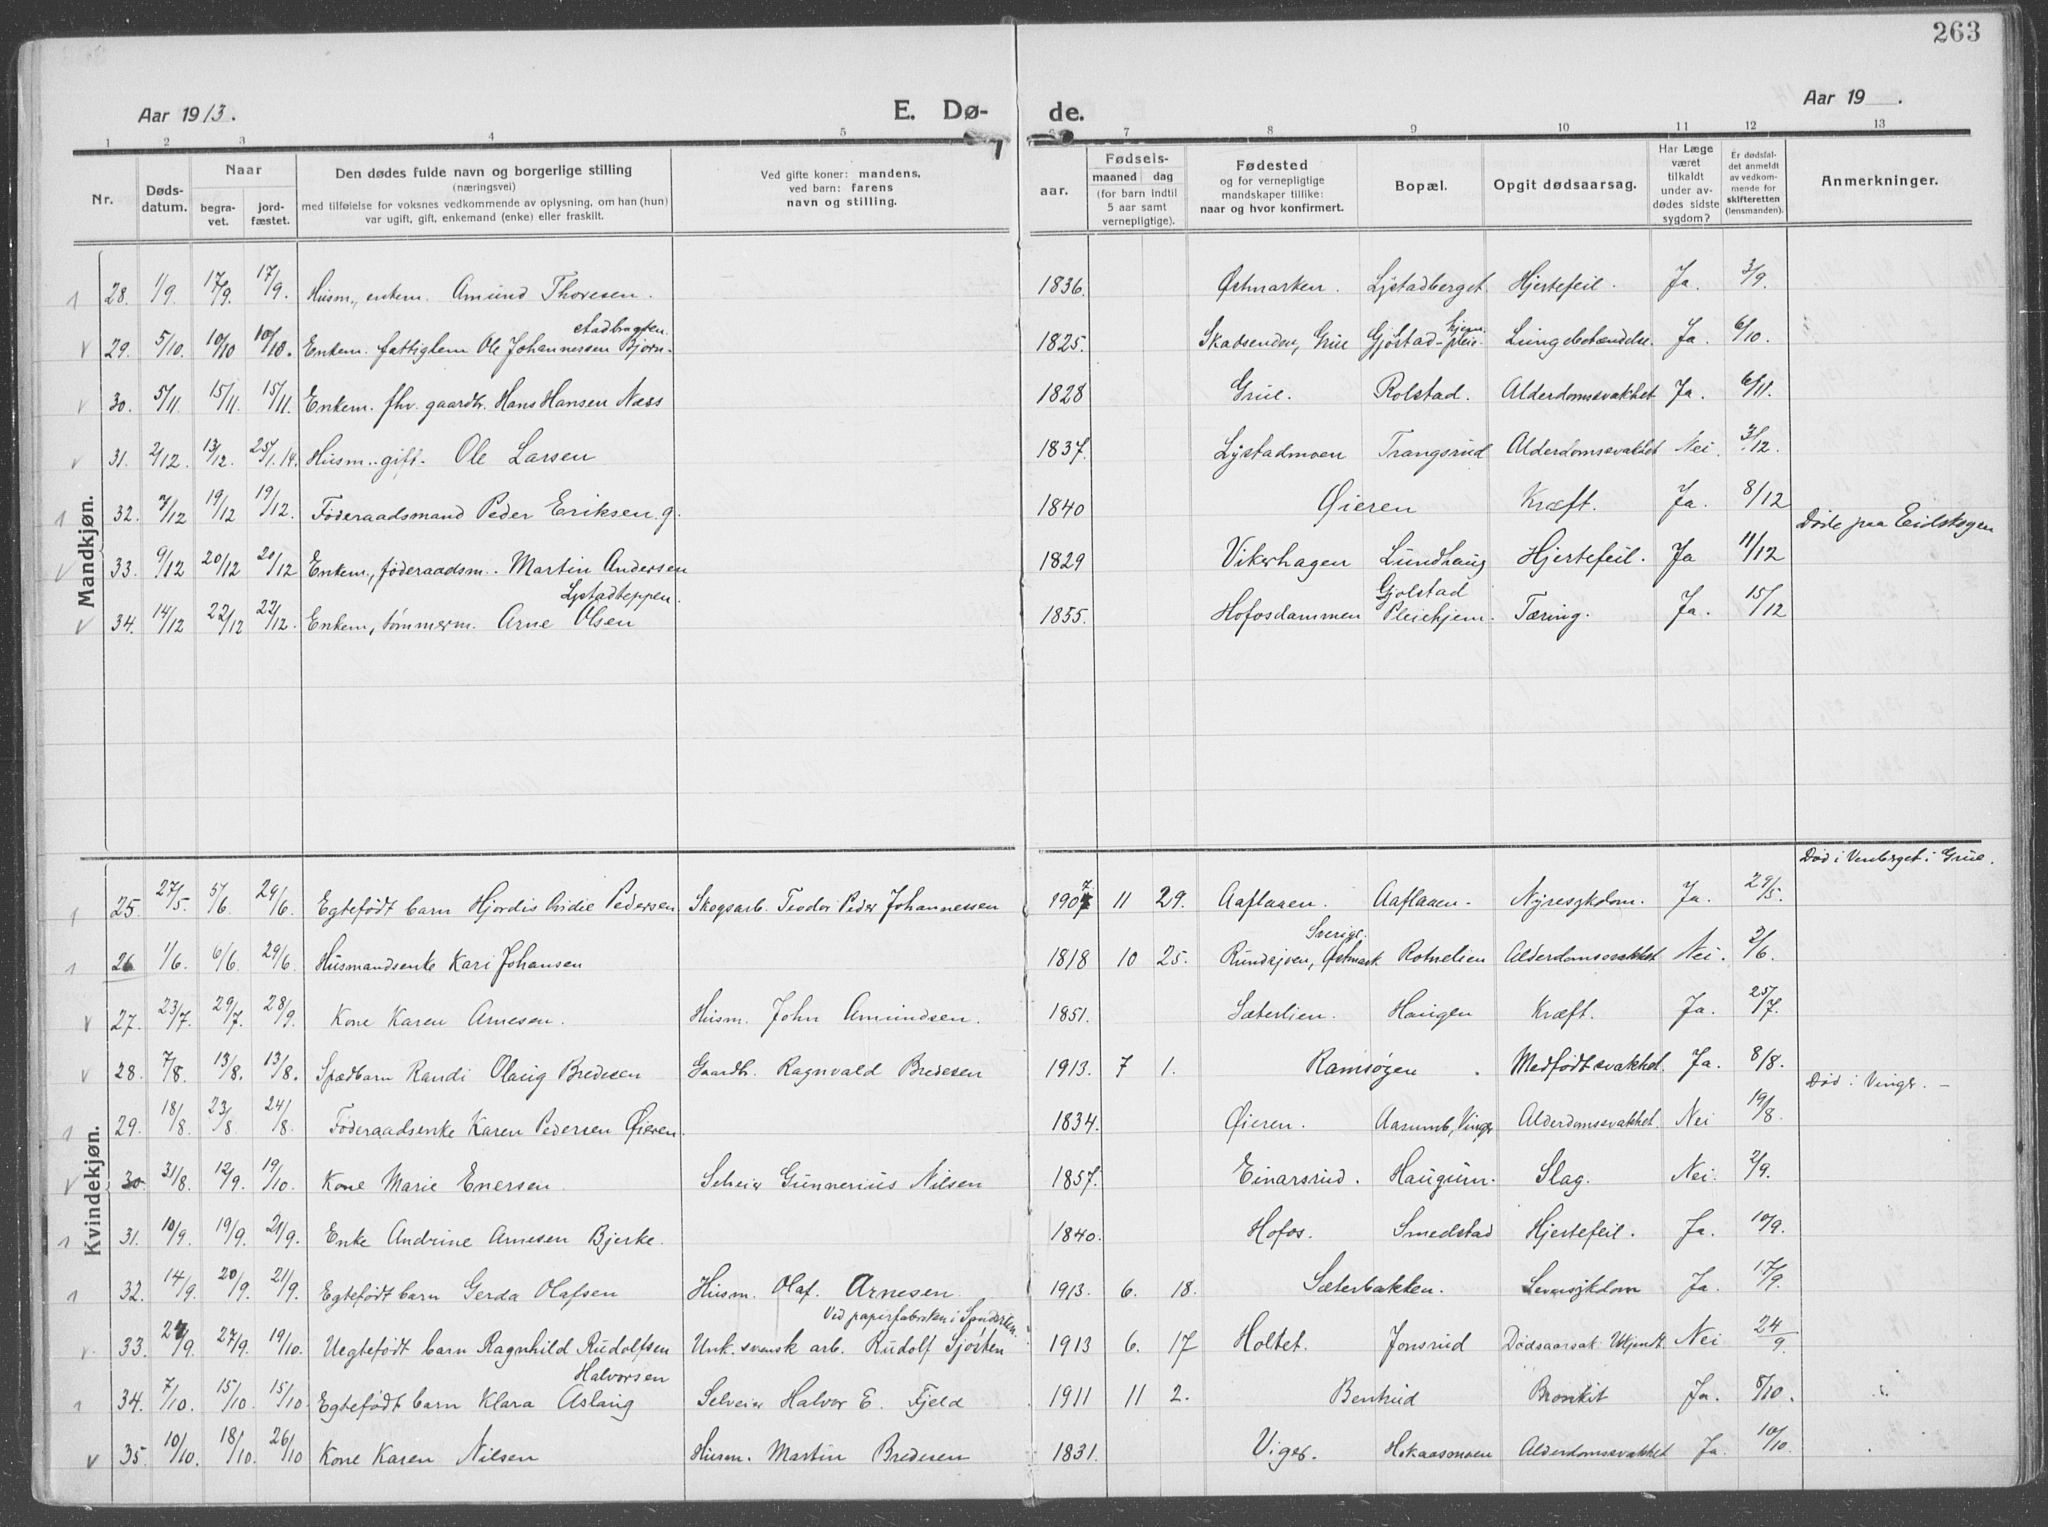 263
Aar 1913.
E. Dø-
de.
Aar 19 .
1 2 3 4 5 7 8 9 10 11 12 13
Nr.
Døds-
datum.
Naar
begra-
vet.
jord-
fæstet.
Den dødes fulde navn og borgerlige stilling
(næringsvei)
med tilføielse for voksnes vedkommende av oplysning, om han (hun)
var ugift, gift, enkemand (enke) eller fraskilt.
Ved gifte koner: mandens,
ved barn: farens
navn og stilling.
aar.
Fødsels-
maaned dag
(for barn indtil
5 aar samt
vernepligtige).
Fødested
og for vernepligtige
mandskaper tillike:
naar og hvor konfirmert.
Bopæl.
Opgit dødsaarsag.
Har Læge
været
tilkaldt
under av-
dødes sidste
sygdom?
Er dødsfal-
det anmeldt
av vedkom-
mende for
skifteretten
(lensmanden).
Anmerkninger.
Mandkjøn.
28. 1/9. 17/9. 17/9. Husm., enkem. Amund Thoresen. 1836. Østmarken. Lystadberget. Hjertefeil. Ja. 3/9.
stadbragten. hjem.
29. 5/10. 10/10 10/10. Enkem. fattiglem Ole Johannessen Bjørn- 1825. Skadsenden, Grue Gjøstad-pleie. Lungebetændelse. Ja. 6/10.
30. 5/11. 15/11. 15/11. Enkem. fhv. gaardbr. Hans Hansen Næss 1828 Grue. Rolstad. Alderdomssvakhet Ja. 6/11.
31. 2/12. 13/12. 25/1.14. Husm.. gift. Ole Larsen 1837. Lystadmoen Trangsrud Alderdomssvakhet Nei. 3/12.
32. 7/12 19/12 19/12. Føderaadsmand Peder Eriksen g. 1840 Øieren Kræft. Ja. 8/12
Døde paa Eidskogen
33. 9/12 20/12 20/12 Enkem., føderaadsm. Martin Andersen 1829 Vikerhagen Lundhaug Hjertefeil. Ja 11/12
Lystadteppen. Gjølstad
34. 14/12 22/12 22/12. Enkem, tømmerm. Arne Olsen 1855. Hofosdammen Pleiehjem. Tæring. Ja. 15/12
Kvindekjøn.
Død i Venberget i Grue.
25. 27/5. 5/6. 29/6. Egtefødt barn Hjordis Ovidie Pedersen Skogsarb. Teodor Peder Johannessen 1907 11 29. Aaflaaen. Aaflaaen. Nyresykdom. Ja. 29/5.
Sverige.
26 1/6. 6/6. 29/6. Husmandsenke Kari Johansen 1818 10 25. Rundsjøen, Østmark Rotnelien Alderdomssvakhet Nei. 2/6.
27. 23/7. 29/7. 28/9. Kone Karen Arnesen. Husm. John Amundsen. 1851. Sæterlien. Haugen Kræft. Ja. 25/7.
28. 7/8. 13/8. 13/8. Spædbarn Randi Olaug Bredesen Gaardbr. Ragnvald Bredesen 1913. 7 1. Ramsøgen Medfødt svakhet. Ja. 8/8.
Død i Vinger. -
29. 18/8. 23/8 24/8. Føderaadsenke Karen Pedersen Øieren. 1834. Øieren. Aarumb, Vinger Alderdomssvakhet. Nei 19/8.
30 31/8. 12/9. 19/10. Kone Marie Enersen. Selveier Gunnerius Nilsen 1857. Einarsrud. Haugum. Slag. Nei. 2/9.
31. 10/9. 19/9. 21/9. Enke Andrine Arnesen Bjerke. 1840. Hofos. Smedstad Hjertefeil. Ja. 10/9.
32. 14/9. 20/9. 21/9. Egtefødt barn Gerda Olafsen Husm. Olaf Arnesen. 1913. 6. 18. Sæterbakken. Leversykdom Ja. 17/9.
Ved papirfabrikken i
33. 27/9. 19/10. Uegtefødt barn Ragnhild Rudolfsen Unk. svensk arb. Rudolf Sjösten 1913 6. 17 Holtet. Jonsrud Dødsaarsak Ukjendt. Nei 24/9.
Halvorsen
34. 7/10. 15/10. 15/10 Egtefødt barn Klara Aslaug Selveier Halvor E. Fjeld 1911 11 2. Bentrud Bronkit Ja. 8/10.
35. 10/10. 18/10. 26/10 Kone Karen Nilsen Husm. Martin Bredesen 1831. Viger. Hokaasmoen Alderdomssvakhet Ja. 10/10.